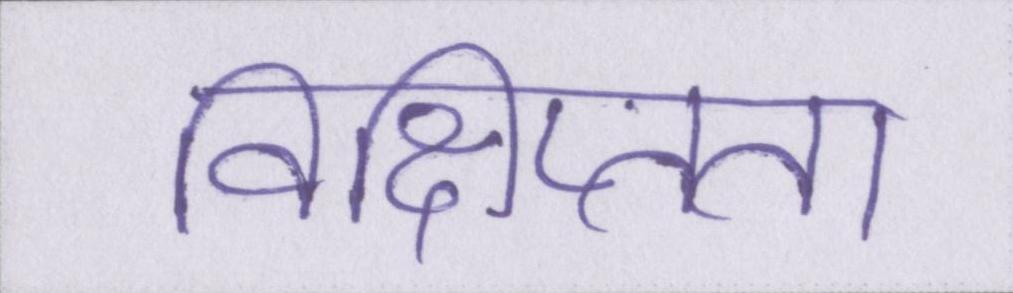 विक्षिप्तता